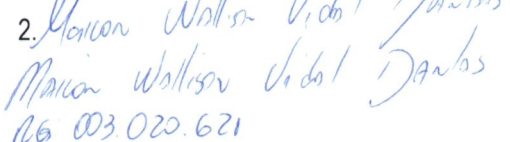 2. Maicon Wallison Vidal Dantas
Maicon Wallison Vidal Dantas
RG 003.020.621